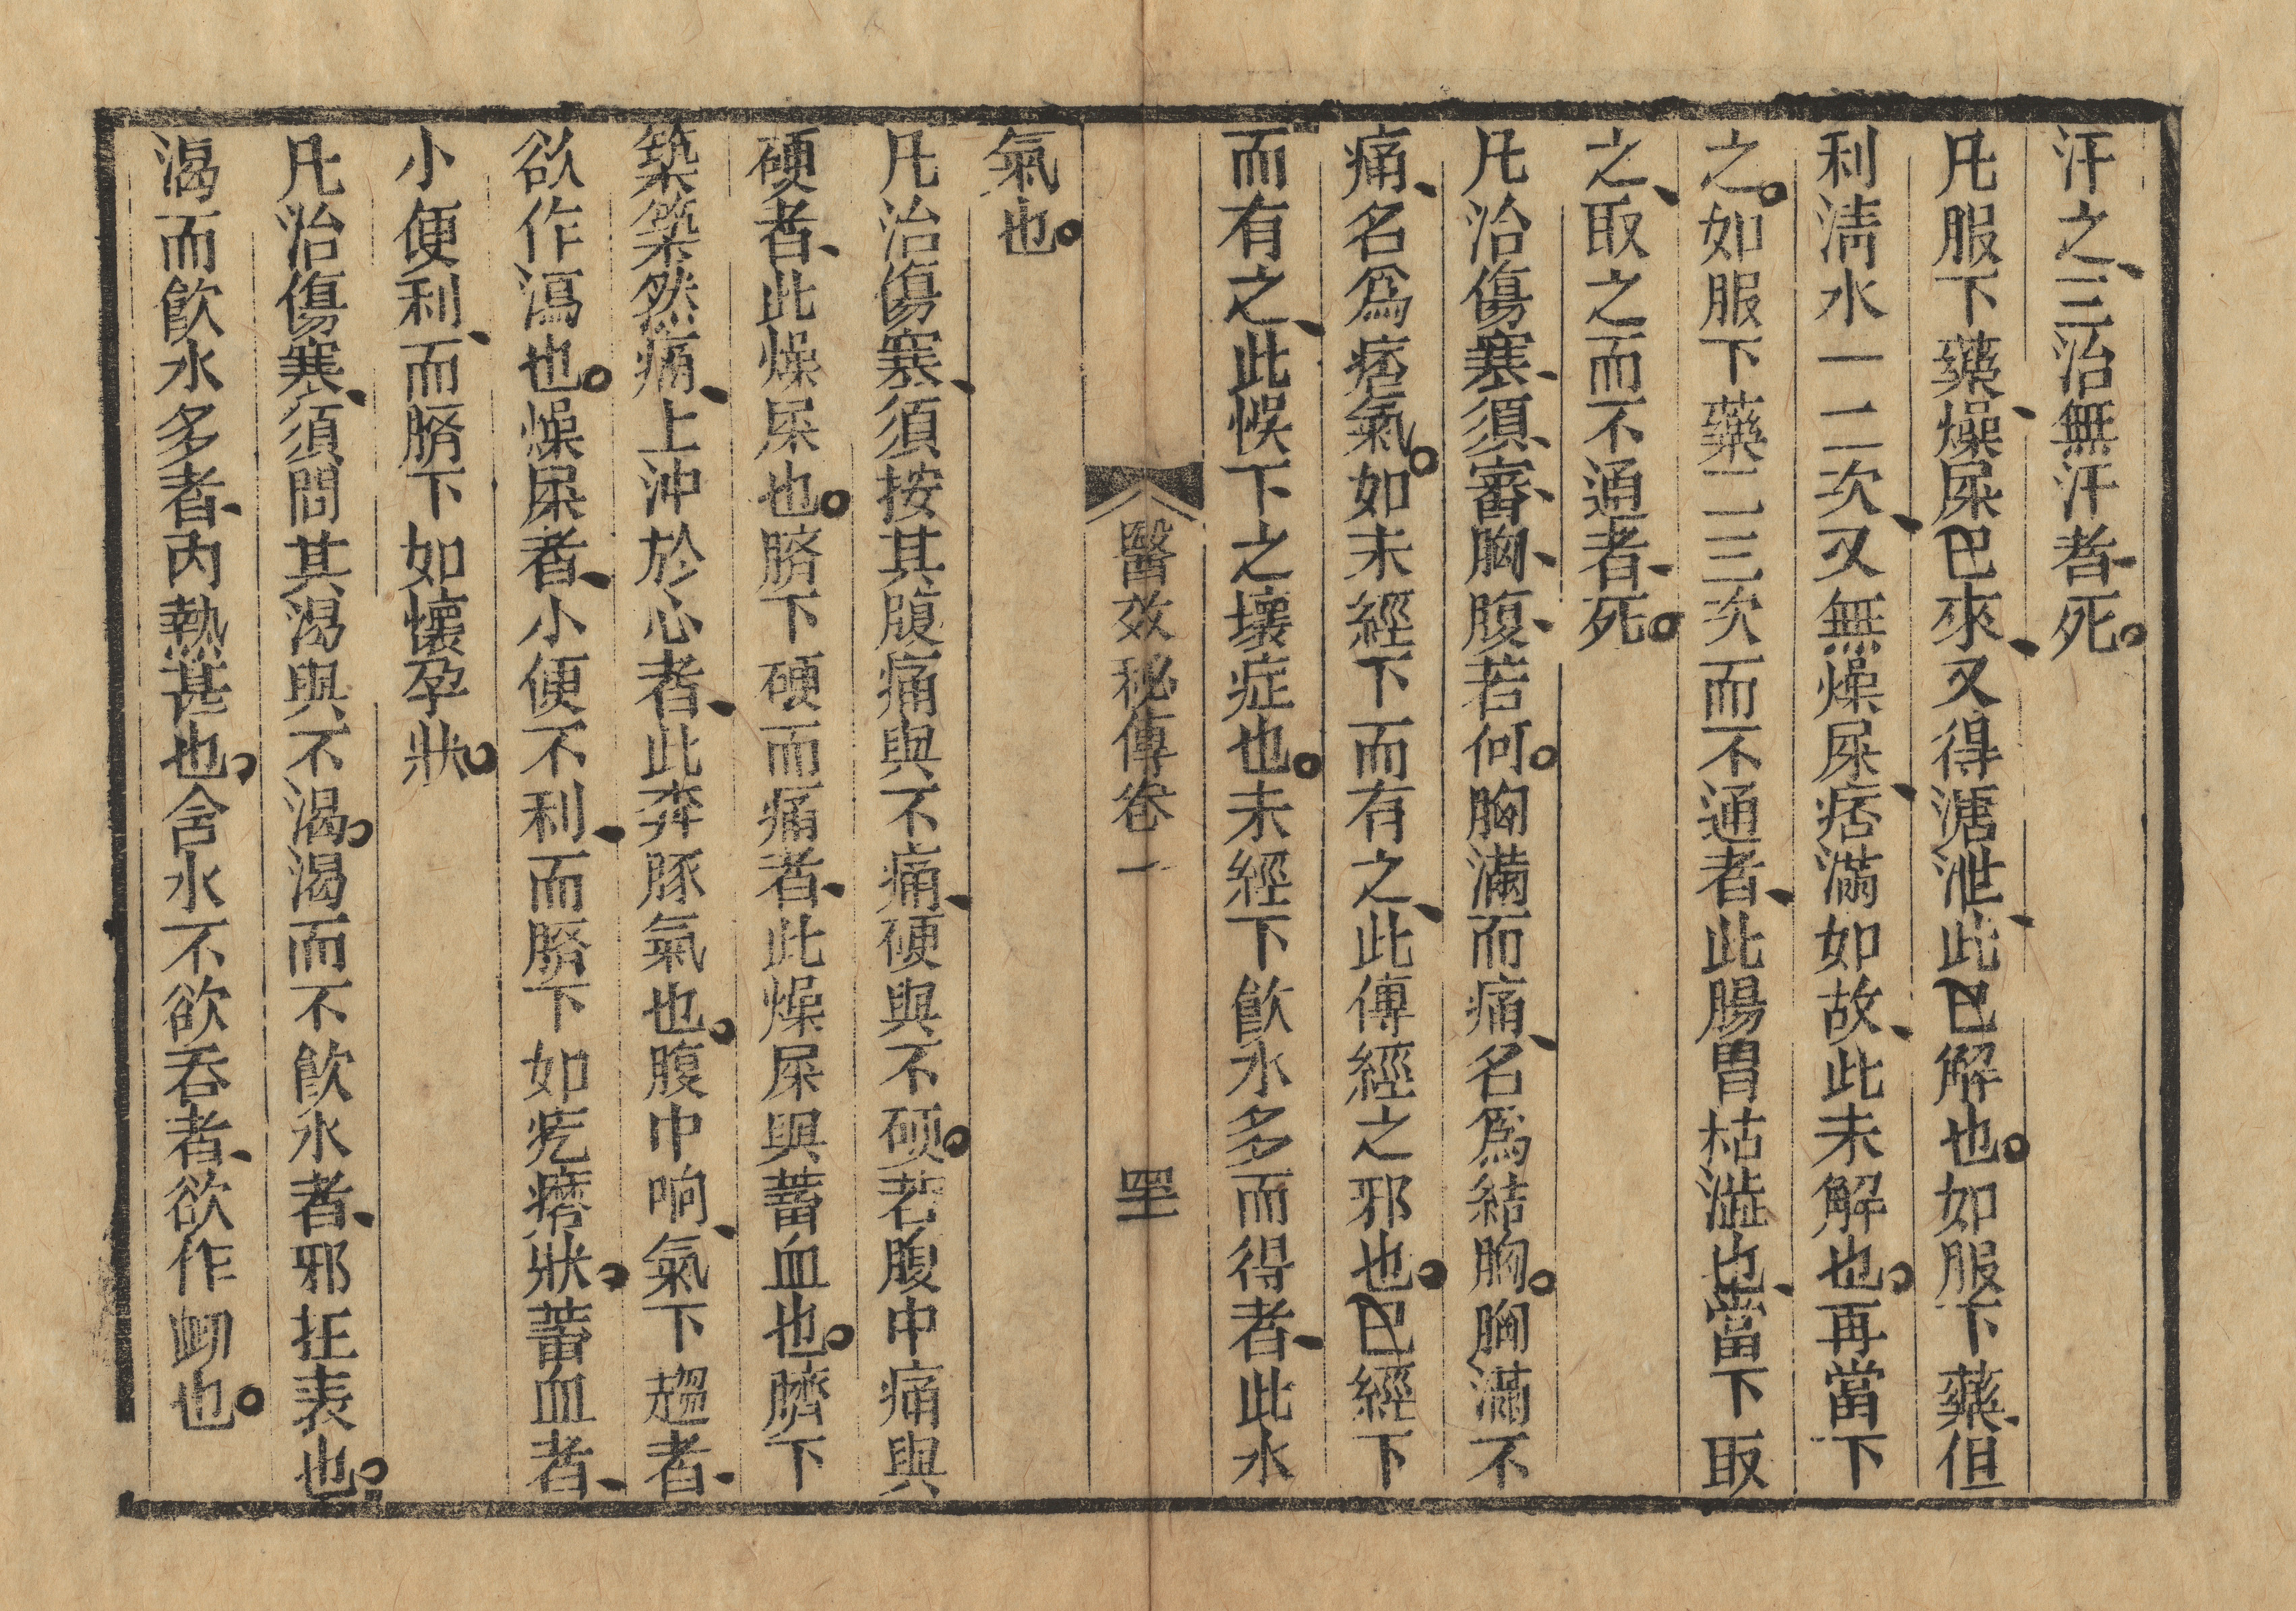 汗之、三治無汗者、死。
凡服下藥、燥屎已來、又得溏泄、此已解也。如服下藥、但
利淸水一二次、又無燥屎、痞滿如故、此未解也。再當下
之。如服下藥二三次而不通者、此腸胃枯澁也、當下取
之、取之而不通者、死。
凡治傷寒、須、審、胸、腹、若何。胸滿而痛、名爲結胸。胸滿不
痛、名爲痞氣。如未經下而有之、此傳經之邪也。已經下
而有之、此悞下之壞症也。未經下飮水多而得者、此水
醫效秘傳卷一 四十一
氣也。
凡治傷寒、須按其腹痛與不痛、硬與不硬。若腹中痛與
硬者、此燥屎也。臍下硬而痛者、此燥屎與蓄血也。臍下
築築然痛、上沖於心者、此奔豚氣也。腹中响、氣下趨者、
欲作瀉也。燥屎者、小便不利、而臍下如疙瘩狀。蓄血者、
小便利、而臍下如懷孕狀。
凡治傷寒、須問其渴與不渴。渴而不飮水者、邪在表也。
渴而飮水多者、内熱甚也。含水不欲吞者、欲作衄也。